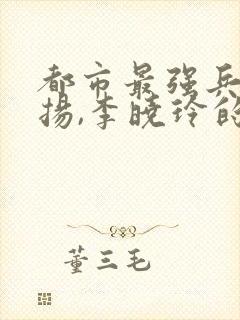 都市最强兵
揚,李曉玲的
董三毛